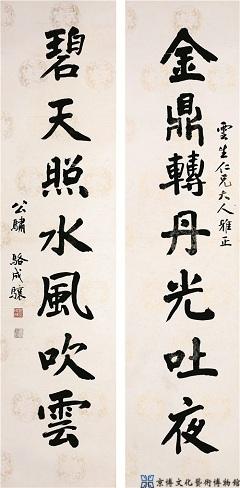 雲生仁兄大人雅正
金鼎轉丹光吐夜
碧天照水風吹雲
公驌 駱成驤
京博文化藝術博物館